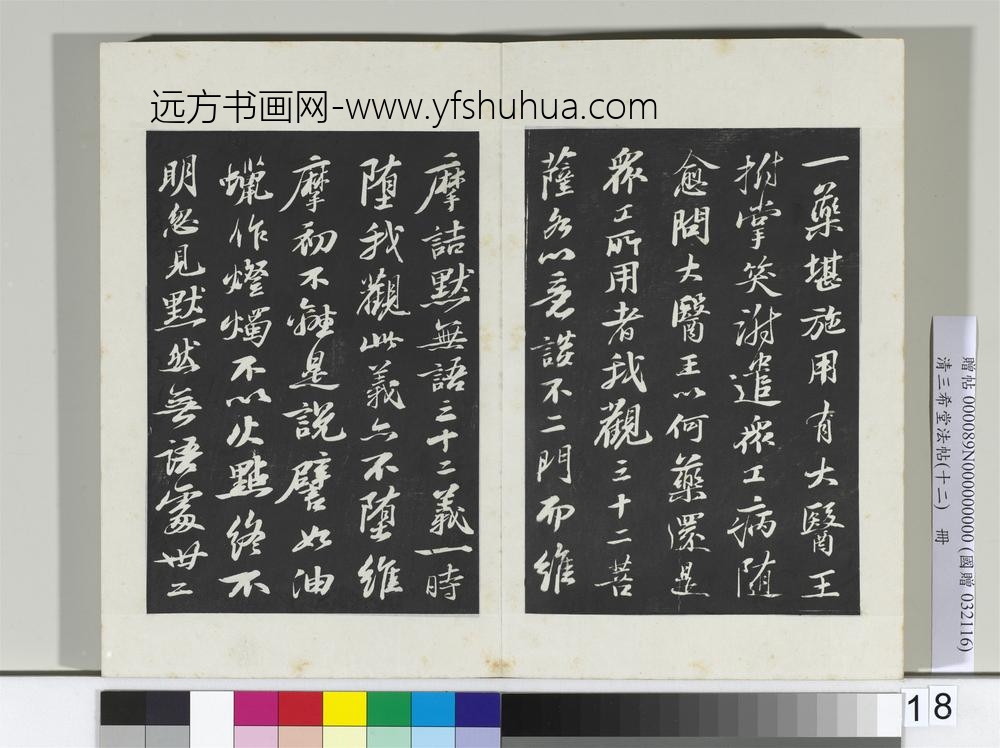 远方书画网-www.yfshuhua.com
一藥堪施用有大醫王
拊掌笑謝遣衆工病隨
愈問大醫王以何藥還是
衆工所用者我觀三十二菩
薩各以意談不二門而維
摩詰默無語三十二義一時
墮我觀此義亦不墮維
摩初不離是說譬如油
蠟作燈燭不以火點終不
明忽見默然無語處卅二
贈帖 000089N000000000 (國贈 032116)
清三希堂法帖(十二) 冊
18